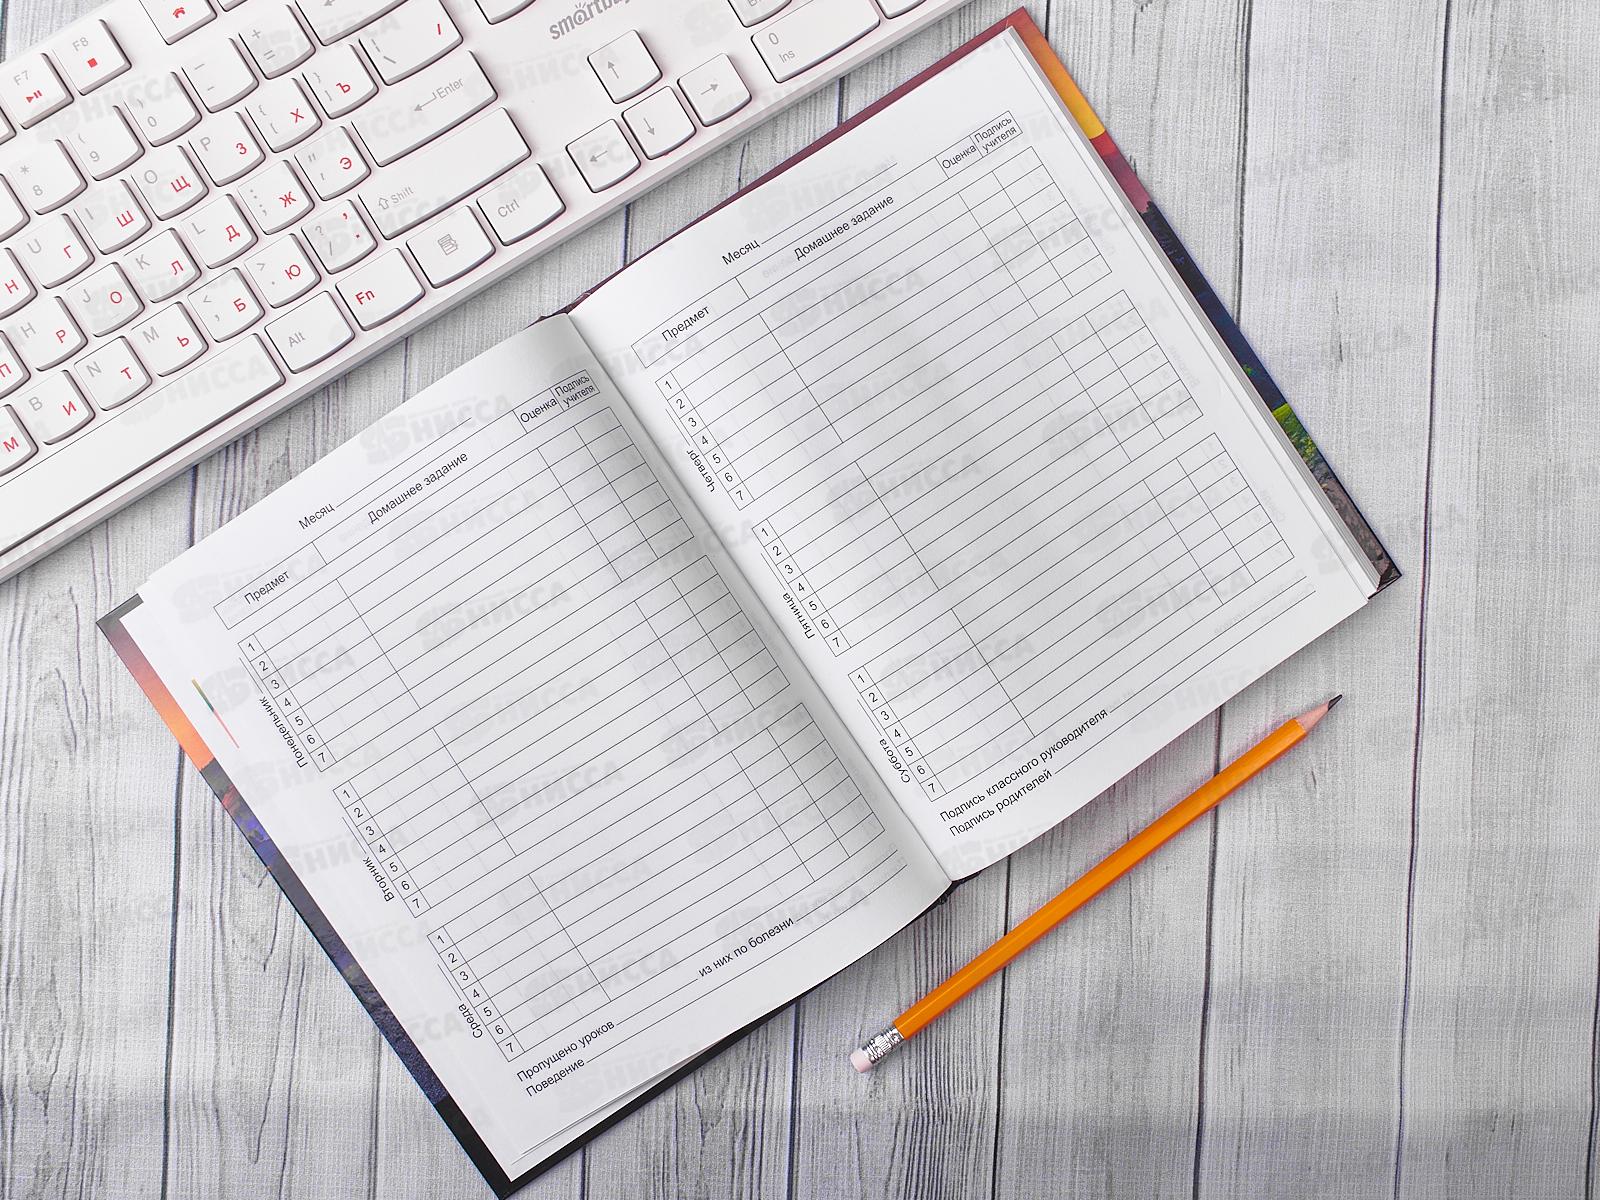 smartbuy
F7
F8
+ =
_ -
) 0
( 9
* 8
{ [ Х
} ] Ъ
| \ /
Enter
P З
O Щ
I Ш
U Г
Н
" ' Э
: ; Ж
L Д
K Л
J О
H Р
П
Shift
? / , .
> . Ю
< , Б
M Ь
N Т
B И
М
Ctrl
Fn
Alt
0
Ins
Месяц
Предмет
Домашнее задание
Оценка
Подпись
учителя
Понедельник
1
2
3
4
5
6
7
Вторник
1
2
3
4
5
6
7
Среда
1
2
3
4
5
6
7
Пропущено уроков из них по болезни
Поведение
Месяц
Предмет
Домашнее задание
Оценка
Подпись
учителя
Четверг
1
2
3
4
5
6
7
Пятница
1
2
3
4
5
6
7
Суббота
1
2
3
4
5
6
7
Подпись классного руководителя
Подпись родителей
НИССА